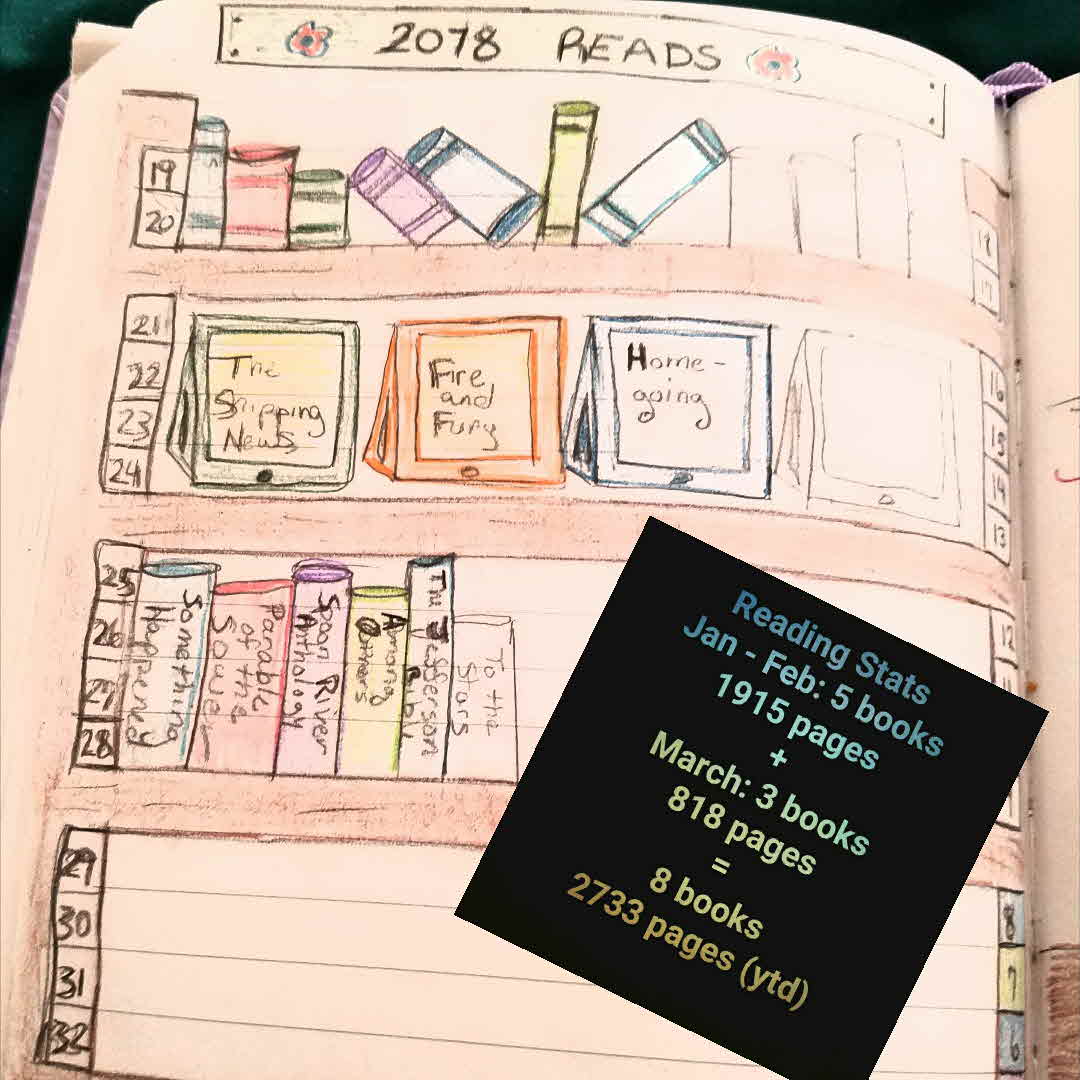 2018 READS
19
20
18
17
21
22
23
24
The
Shipping
News
Fire
and
Fury
Home-
going
16
15
14
13
25
26
27
28
Something
Happened
Parable
of the
Sower
Spoon River
Anthology
Among
Others
The Jefferson
Bible
To the
Stars
12
29
30
31
32
8
7
6
Reading Stats
Jan - Feb: 5 books
1915 pages
+
March: 3 books
818 pages
=
8 books
2733 pages (ytd)